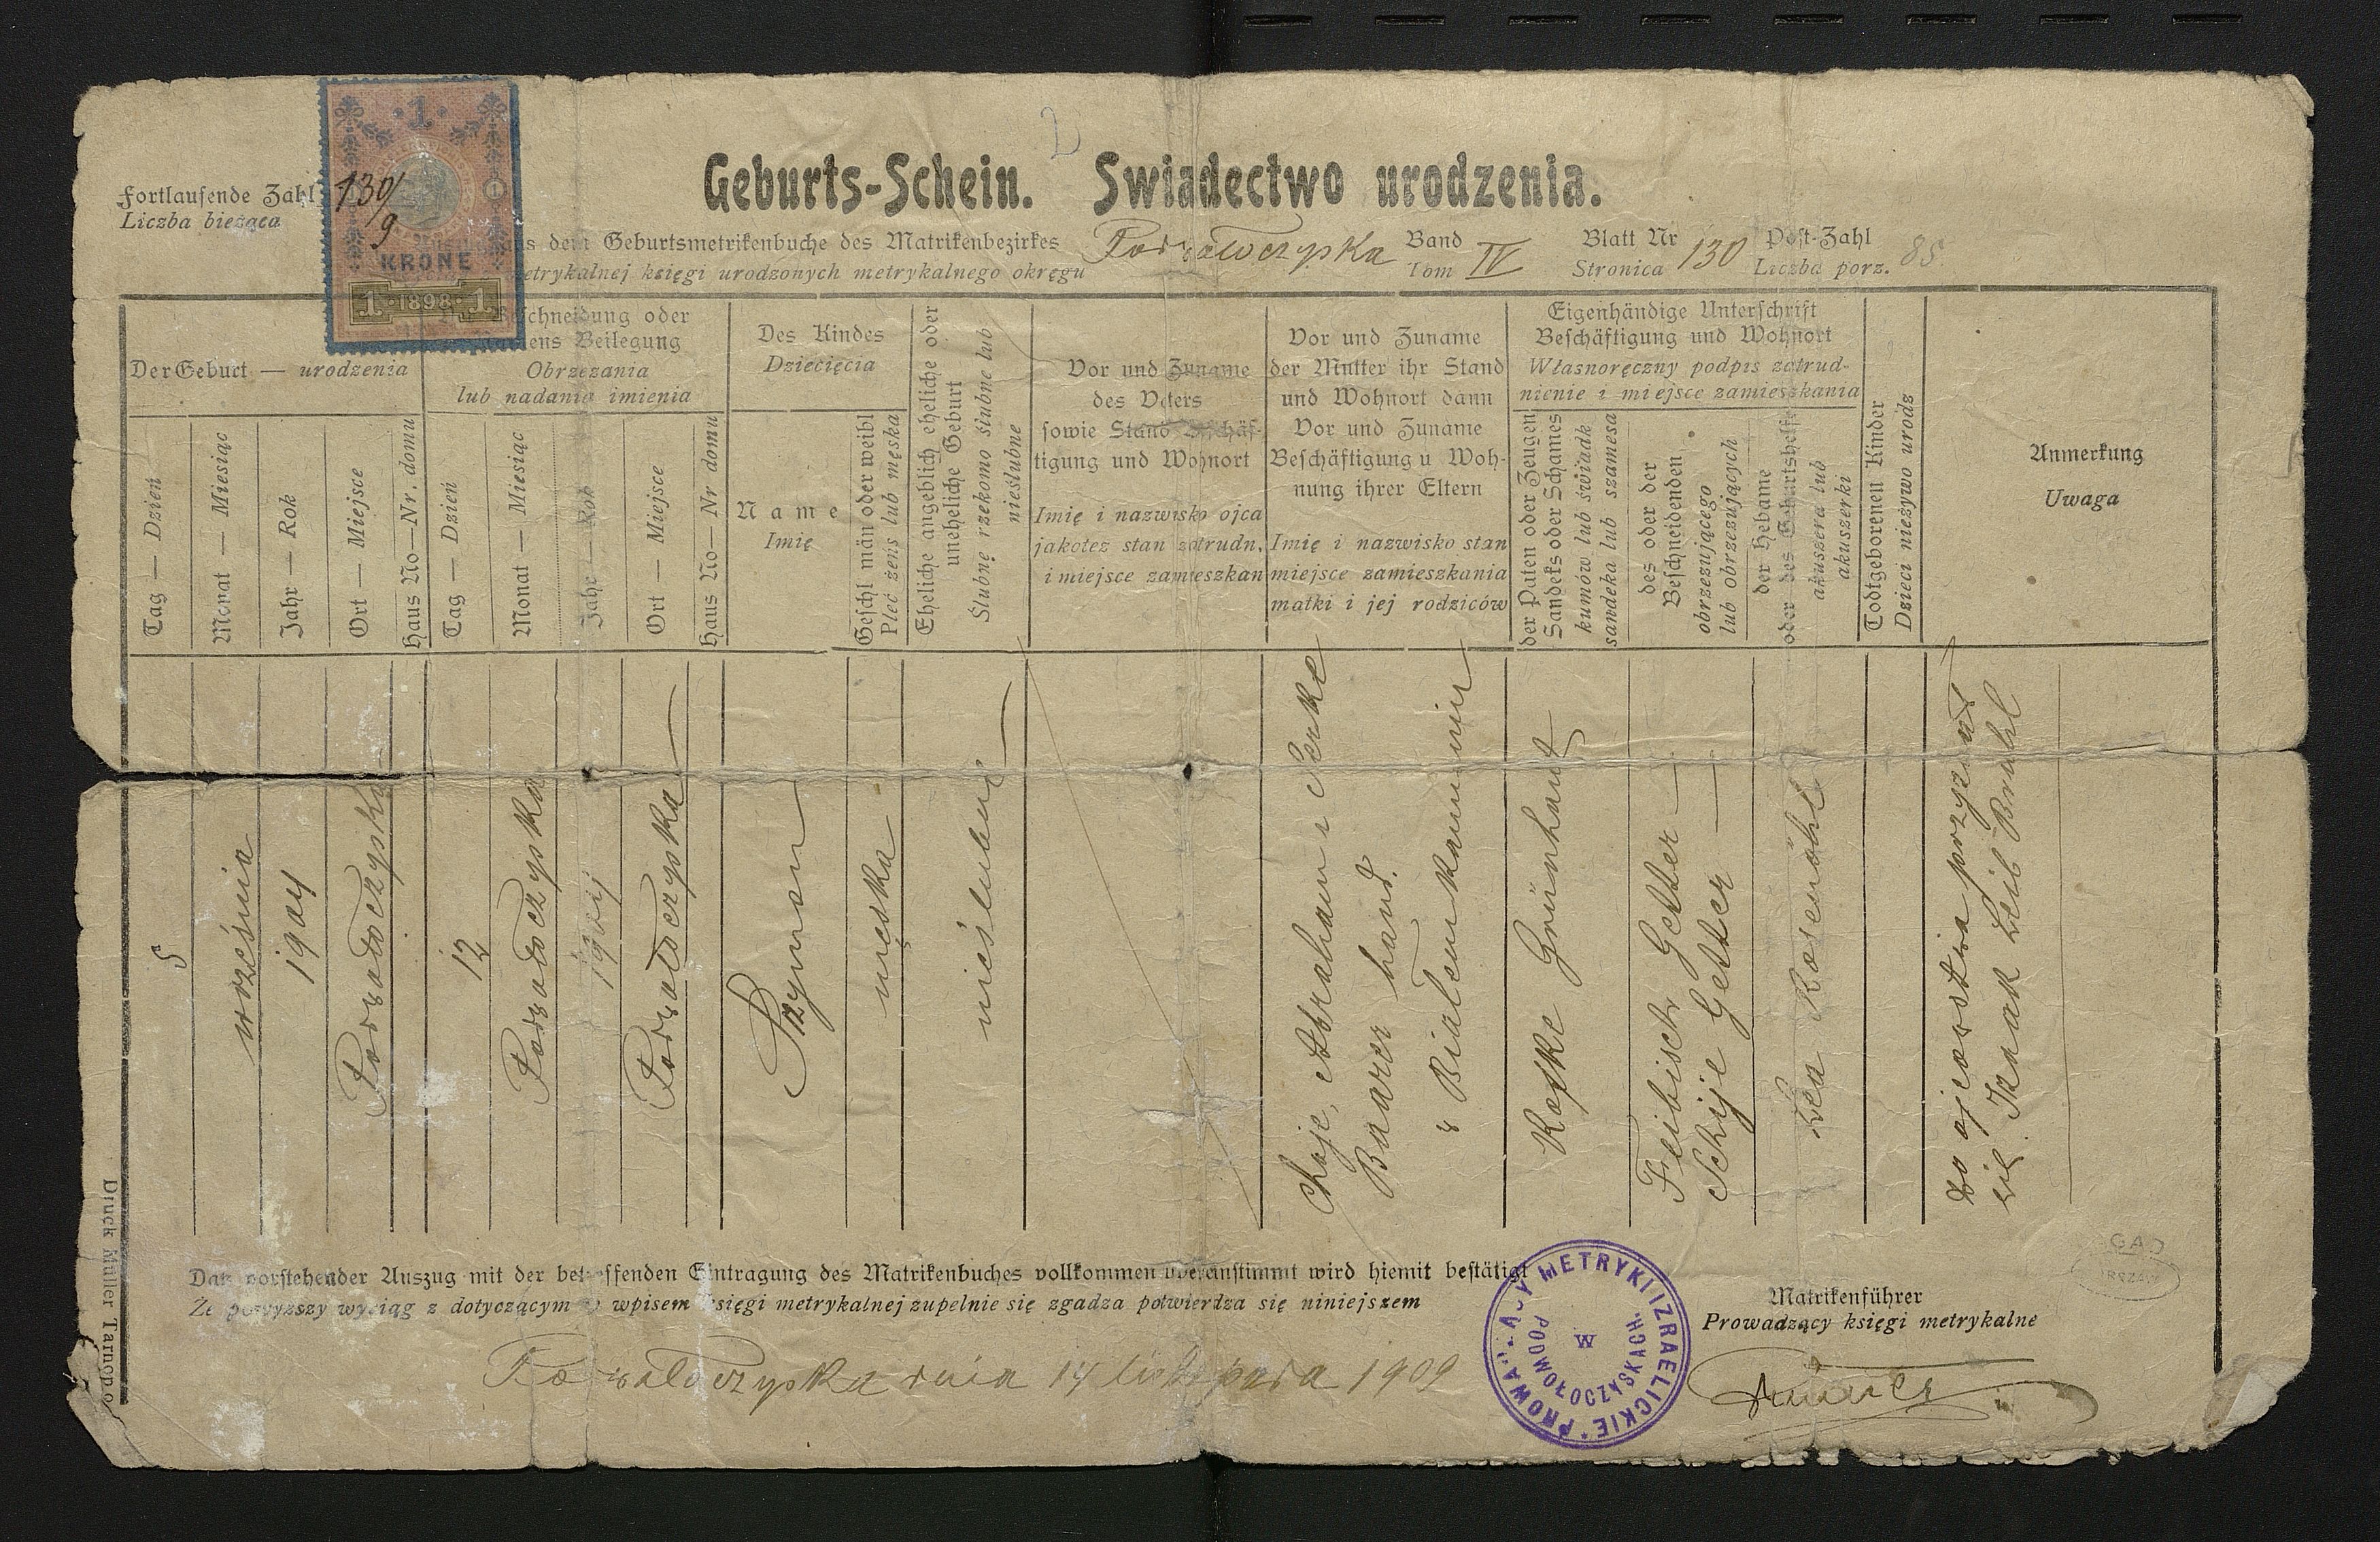 Geburts-Schein. Swiadectwo urodzenia.
Fortlaufende Zahl 130/9
Liczba bieżąca
1
KRONE
1 · 1898 · 1
aus dem Geburtsmetrikenbuche des Matrikenbezirkes
metrykalnej księgi urodzonych metrykalnego okręgu
Podwołoczyska
Band
Tom IV
Blatt Nr
Stronica 130
Post-Zahl
Liczba porz. 85
Der Geburt — urodzenia
Beschneidung oder
Namens Beilegung
Obrzezania
lub nadania imienia
Des Kindes
Dziecięcia
Tag — Dzień
Monat — Miesiąc
Jahr — Rok
Ort — Miejsce
Haus No — Nr. domu
Tag — Dzień
Monat — Miesiąc
Jahr — Rok
Ort — Miejsce
Haus No — Nr domu
Name
Imię
Geschl män oder weibl
Płeć żeńs lub męska
Eheliche angeblich eheliche oder
uneheliche Geburt
Ślubne rzekomo ślubne lub
nieślubne
Vor und Zuname
des Vaters
sowie Stand Beschäf-
tigung und Wohnort
Imię i nazwisko ojca
jakoteż stan zatrudn.
i miejsce zamieszkan
Vor und Zuname
der Mutter ihr Stand
und Wohnort dann
Vor und Zuname
Beschäftigung u Woh-
nung ihrer Eltern
Imię i nazwisko stan
miejsce zamieszkania
matki i jej rodziców
Eigenhändige Unterschrift
Beschäftigung und Wohnort
Własnoręczny podpis zatrud-
nienie i miejsce zamieszkania
der Paten oder Zeugen
Sandeks oder Schames
kumów lub świadk
sandeka lub szamesa
des oder der
Beschneidenden
obrzezującego
lub obrzezujących
der Hebame
oder des Geburtshelf
akuszera lub
akuszerki
Todtgeborenen Kinder
Dzieci nieżywo urodz
Anmerkung
Uwaga
5
września
1904
Podwołoczyska
12
Podwołoczyska
1904
Podwołoczyska
Szymon
męska
nieślubne
Chaje, Abraham i Perke
Baarer hand.
z Bialemkamieniu
Rofke Grünhaut
Feibisch Getter
Schije Getter
Lea Rosenöhl
do ojcowstwa przyznał
się Izaak Leib Brühl
Daß vorstehender Auszug mit der betreffenden Eintragung des Matrikenbuches vollkommen übereinstimmt wird hiemit bestätigt
Że powyższy wyciąg z dotyczącym wpisem księgi metrykalnej zupełnie się zgadza potwierdza się niniejszem
Podwołoczyska dnia 14 listopada 1909
PROWADZĄCY METRYKI IZRAELICKIE
W
PODWOŁOCZYSKACH
Matrikenführer
Prowadzący księgi metrykalne
Druck Müller Tarnopol